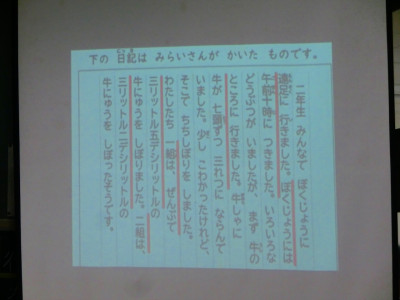 下の 日記は みらいさんが かいた ものです。
二年生 みんなで ぼくじょうに
遠足に 行きました。ぼくじょうには
午前十時に つきました。いろいろな
どうぶつが いましたが、まず 牛の
ところに 行きました。牛しゃに
牛が 七頭ずつ 三れつに ならんで
いました。少し こわかったけれど、
そこで ちちしぼりを しました。
わたしたち 一組は、ぜんぶで
三リットル五デシリットルの
牛にゅうを しぼりました。二組は、
三リットル二デシリットルの
牛にゅうを しぼったそうです。